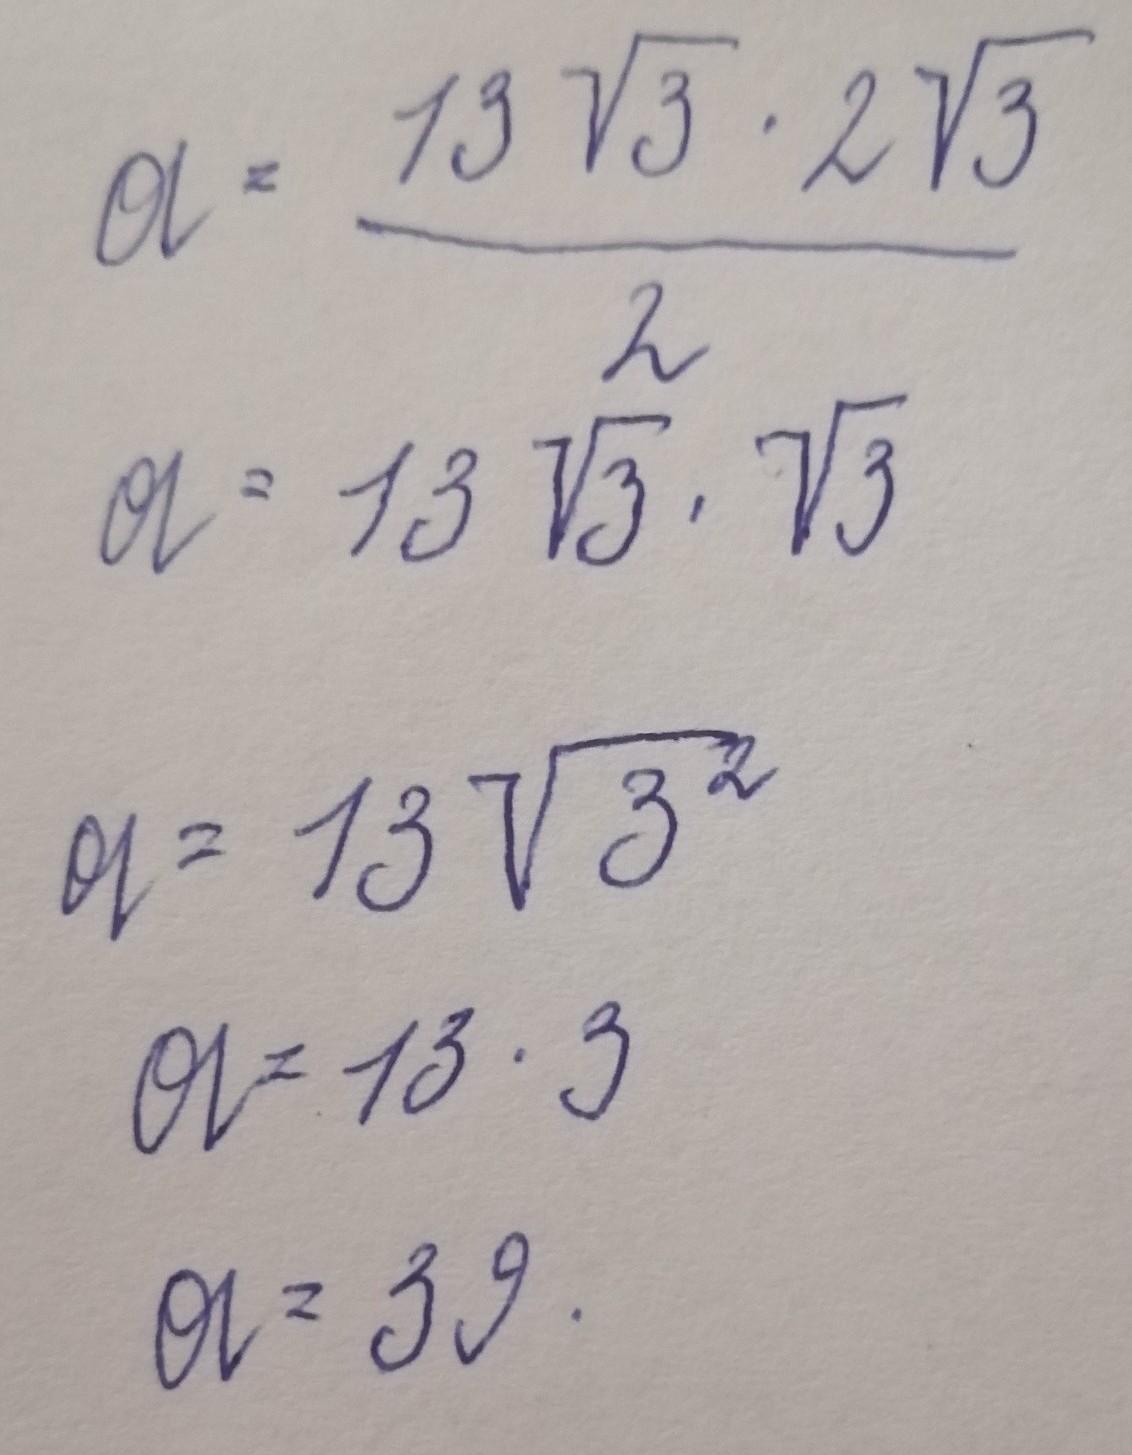 a = (13√3 · 2√3) / 2
a = 13√3 · √3
a = 13√3²
a = 13 · 3
a = 39.